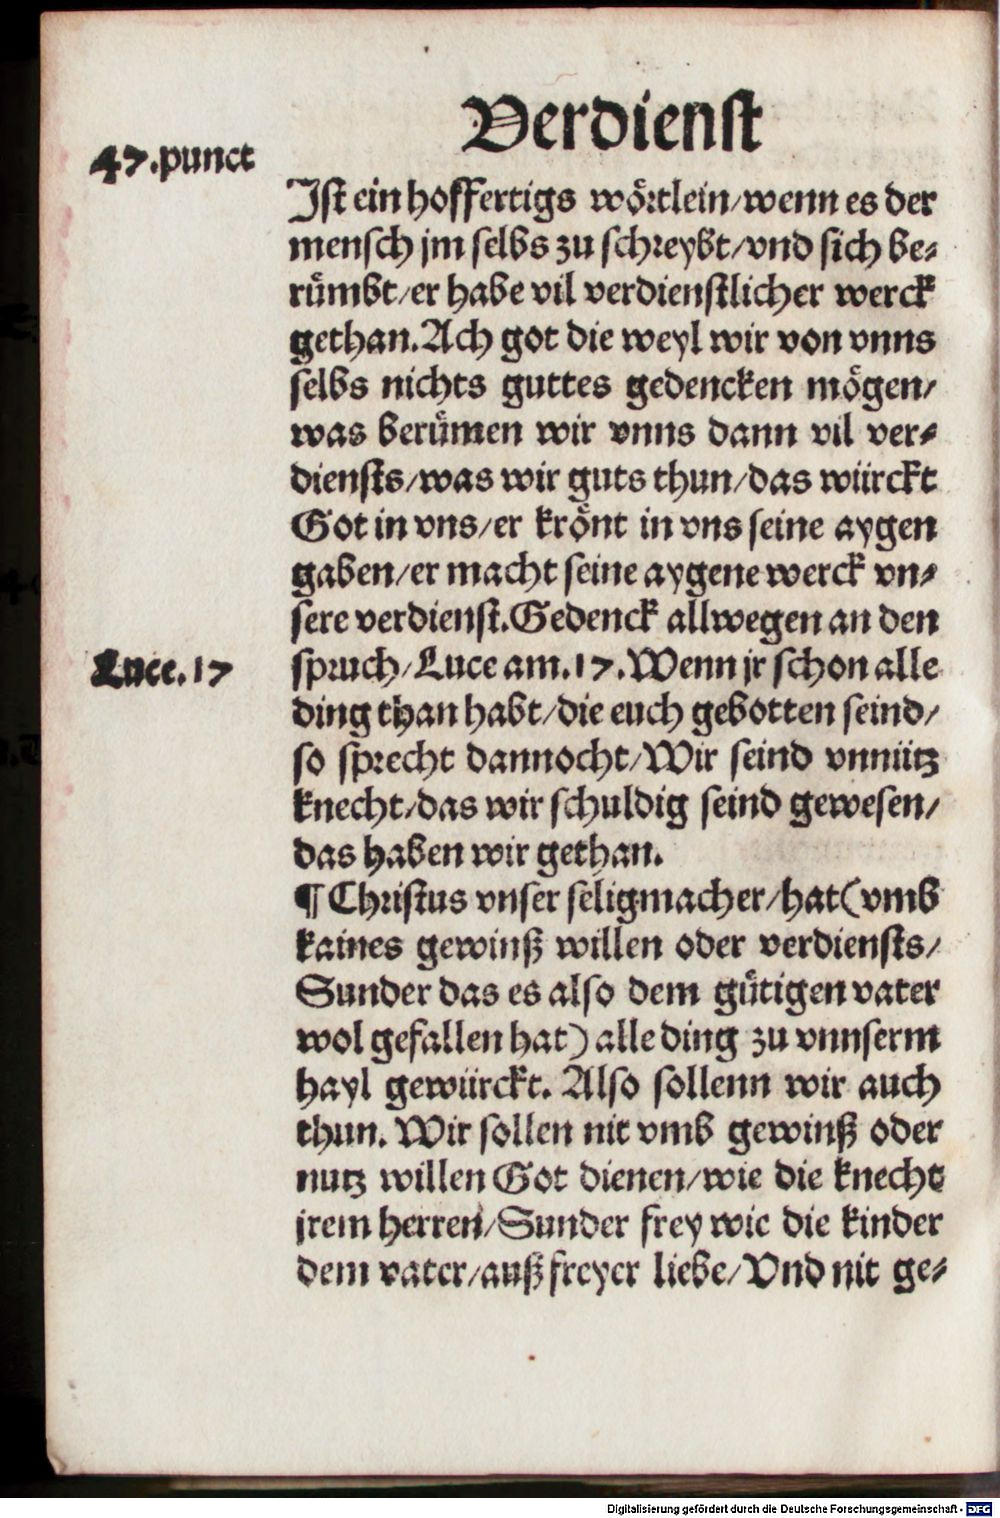 Verdienst
47.punct
Ist ein hoffertigs wörtlein/wenn es der
mensch jm selbs zu schreybt/vnd sich be⸗
rümbt/er habe vil verdienstlicher werck
gethan.Ach got die weyl wir von vnns
selbs nichts guttes gedencken mögen/
was berümen wir vnns dann vil ver⸗
diensts/was wir guts thun/das würckt
Got in vns/er krönt in vns seine aygen
gaben/er macht seine aygene werck vn⸗
sere verdienst.Gedenck allwegen an den
Luce.17
spruch/Luce am.17.Wenn jr schon alle
ding than habt/die euch gebotten seind/
so sprecht dannocht/Wir seind vnnütz
knecht/das wir schuldig seind gewesen/
das haben wir gethan.
¶ Christus vnser seligmacher/hat(vmb
kaines gewinß willen oder verdiensts/
Sunder das es also dem gütigen vater
wol gefallen hat) alle ding zu vnnserm
hayl gewürckt. Also sollenn wir auch
thun. Wir sollen nit vmb gewinß oder
nutz willen Got dienen/wie die knecht
jrem herren/Sunder frey wie die kinder
dem vater/auß freyer liebe/Vnd nit ge⸗
Digitalisierung gefördert durch die Deutsche Forschungsgemeinschaft - DFG